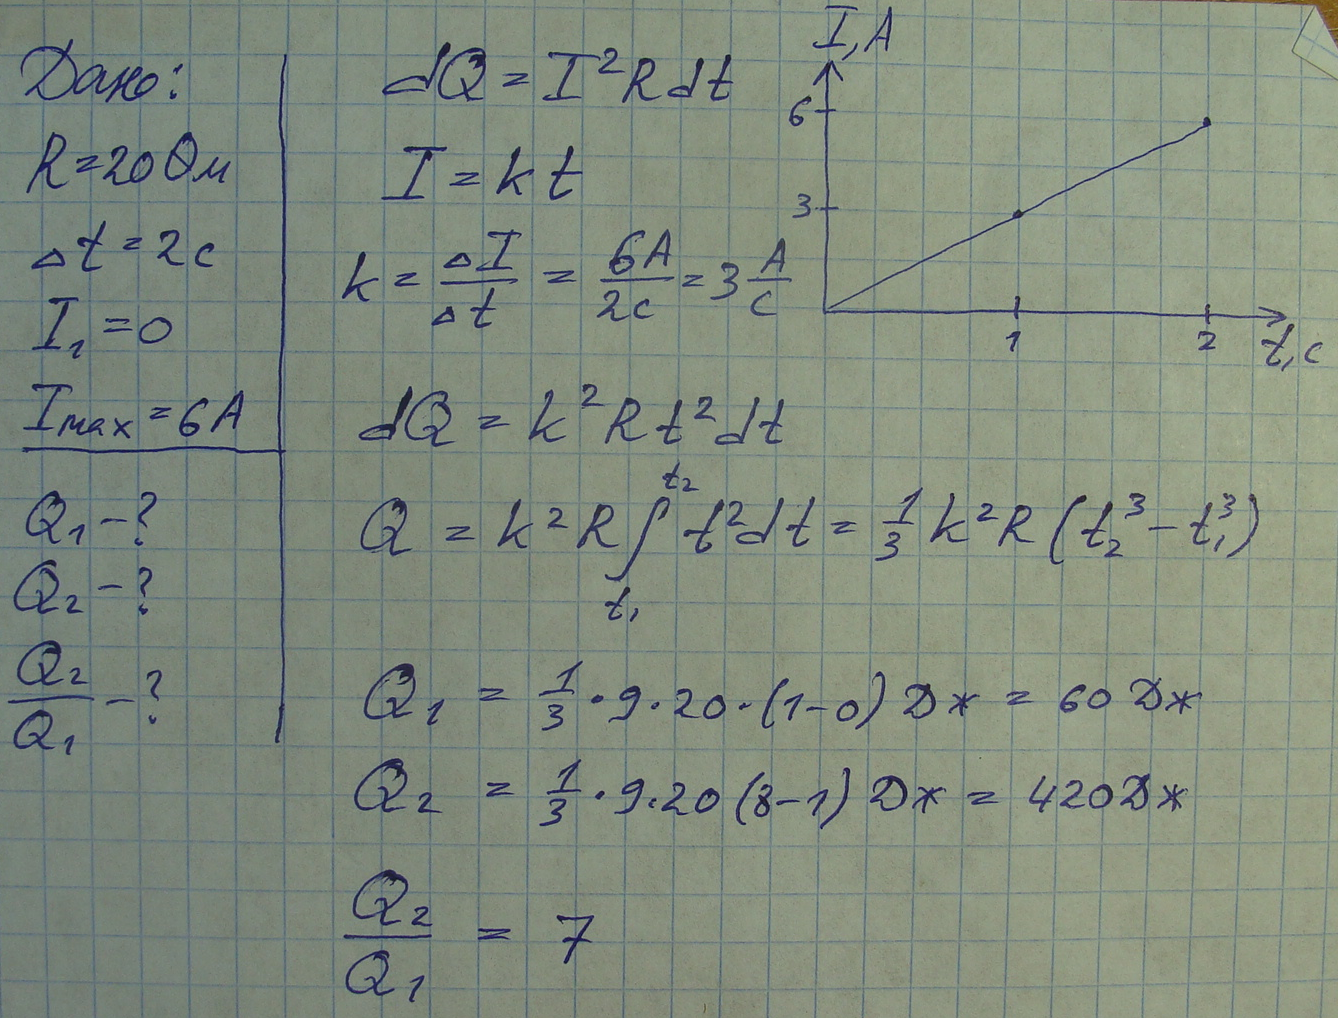 Дано:
R=20 Ом
Δt=2c
I₁=0
Imax=6A
Q₁-?
Q₂-?
Q₂/Q₁-?
dQ=I²Rdt
I=kt
k=ΔI/Δt=6A/2c=3 A/c
I,A
6
3
1
2
t,c
dQ=k²Rt²dt
Q=k²R∫t₁t₂ t²dt=1/3 k²R(t₂³-t₁³)
Q₁=1/3·9·20·(1-0) Дж=60 Дж
Q₂=1/3·9·20(8-1) Дж=420Дж
Q₂/Q₁=7